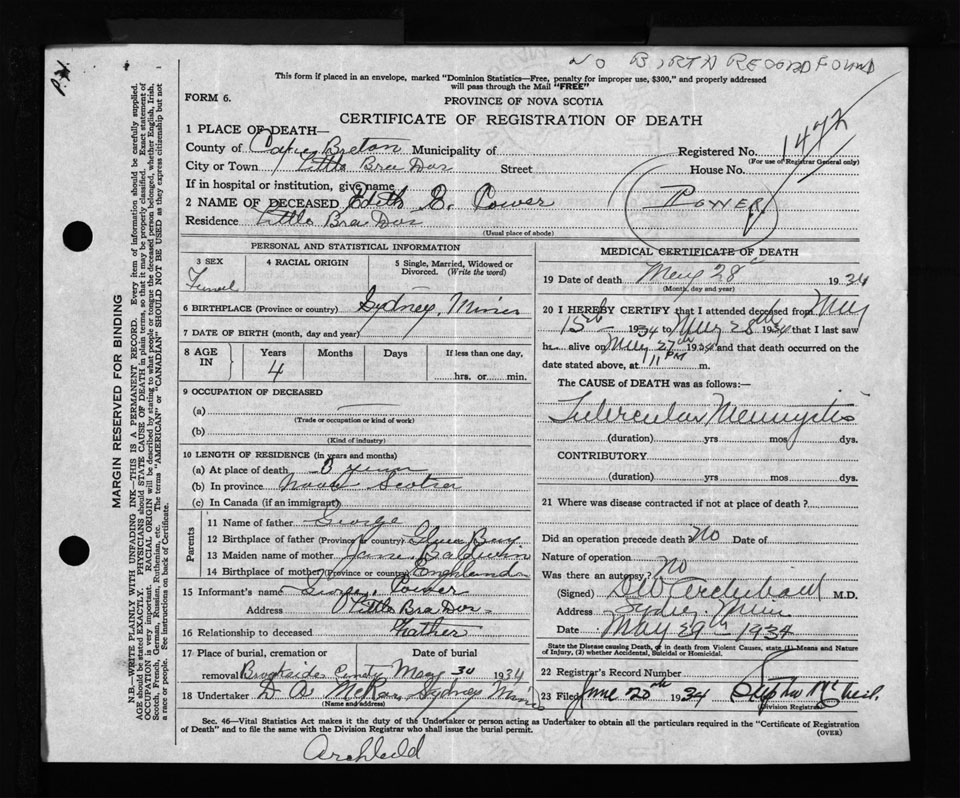 NO BIRTH RECORD FOUND
This form if placed in an envelope, marked "Dominion Statistics—Free, penalty for improper use, $300," and properly addressed
will pass through the Mail "FREE"
FORM 6.
PROVINCE OF NOVA SCOTIA
CERTIFICATE OF REGISTRATION OF DEATH
1 PLACE OF DEATH—
County of Cape Breton Municipality of
Registered No. 1472
(For use of Registrar General only)
City or Town Little Bra Dor Street House No.
If in hospital or institution, give name
2 NAME OF DECEASED Edith E. Power
POWER
Residence Little Bra Dor
(Usual place of abode)
PERSONAL AND STATISTICAL INFORMATION
3 SEX
4 RACIAL ORIGIN
5 Single, Married, Widowed or
Divorced. (Write the word)
6 BIRTHPLACE (Province or country) Sydney, Mines
7 DATE OF BIRTH (month, day and year)
8 AGE IN
Years Months Days If less than one day,
4
hrs. or min.
9 OCCUPATION OF DECEASED
(a) —
(Trade or occupation or kind of work)
(b)
(Kind of industry)
10 LENGTH OF RESIDENCE (in years and months)
(a) At place of death
(b) In province Nova Scotia
(c) In Canada (if an immigrant)
Parents
11 Name of father George
12 Birthplace of father (Province or country) Glace Bay
13 Maiden name of mother Jane Baldwin
14 Birthplace of mother (Province or country) England
15 Informant's name George Power
Address Little Bra Dor
16 Relationship to deceased Father
17 Place of burial, cremation or removal Date of burial
Brookside May 30 1934
18 Undertaker Sydney Mines
(Name and address)
MEDICAL CERTIFICATE OF DEATH
19 Date of death May 28 1934
(Month, day and year)
20 I HEREBY CERTIFY that I attended deceased from May
15th 1934 to May 28th 1934 that I last saw
h alive on May 27th 1934 and that death occurred on the
date stated above, at 11 PM m.
The CAUSE of DEATH was as follows:—
Tubercular Meningitis
(duration) yrs mos dys.
CONTRIBUTORY
(duration) yrs mos dys.
21 Where was disease contracted if not at place of death?
Did an operation precede death? No Date of
Nature of operation
Was there an autopsy? No
(Signed) Archibald M.D.
Address Sydney Mines
Date May 29th 1934
State the Disease causing Death, or in death from Violent Causes, state (1) Means and Nature
of Injury, (2) whether Accidental, Suicidal or Homicidal.
22 Registrar's Record Number
23 Filed June 20th 1934
Division Registrar
Sec. 46—Vital Statistics Act makes it the duty of the Undertaker or person acting as Undertaker to obtain all the particulars required in the "Certificate of Registration
of Death" and to file the same with the Division Registrar who shall issue the burial permit.
(OVER)
MARGIN RESERVED FOR BINDING
N.B.—WRITE PLAINLY WITH UNFADING INK—THIS IS A PERMANENT RECORD. Every item of information should be carefully supplied.
AGE should be stated EXACTLY. PHYSICIANS should STATE CAUSE OF DEATH in plain terms, so that it may be properly classified. Exact statement of
OCCUPATION is very important. RACIAL ORIGIN will be described by stating to what people or tongue the deceased person belonged, whether English, Irish,
Scotch, French, German, Russian, Ruthenian, etc. The terms "AMERICAN" or "CANADIAN" SHOULD NOT BE USED as they express citizenship but not
a race or people. See instructions on back of Certificate.